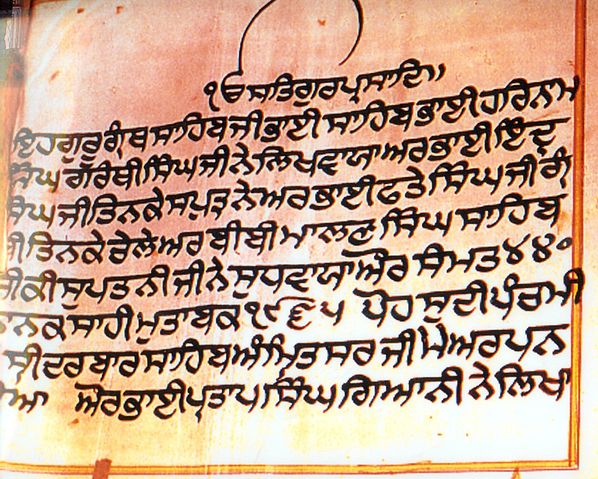 ੴ ਸਤਿਗੁਰਪ੍ਰਸਾਦਿ॥
ਇਹ ਗੁਰੂ ਗ੍ਰੰਥ ਸਾਹਿਬ ਜੀ ਭਾਈ ਸਾਹਿਬ ਭਾਈ ਹਰਿਨਾਮ
ਸਿੰਘ ਗਰੰਥੀ ਸਿੰਘ ਜੀ ਨੇ ਲਿਖਵਾਯਾ ਅਰ ਭਾਈ ਇੰਦ੍ਰ
ਸਿੰਘ ਜੀ ਤਿਨਕੇ ਸਪੁੜ ਨੇ ਅਰ ਭਾਈ ਫਤੇ ਸਿੰਘ ਜੀ ਗ੍ਰੰ
ਜੀ ਤਿਨਕੇ ਚੇਲੇ ਅਰ ਬੀਬੀ ਮਾਲਣ ਸਿੰਘ ਸਾਹਿਬ
ਜੀ ਕੀ ਸੁਪਤਨੀ ਜੀ ਨੇ ਸੁਧਵਾਯਾ ਔਰ ਸੰਮਤ ੪੪੦
ਨਾਨਕ ਸਾਹੀ ਮੁਤਾਬਕ ੧੯੬੫ ਪੋਹ ਸੁਦੀ ਪੰਚਮੀ
ਸ੍ਰੀ ਦਰਬਾਰ ਸਾਹਿਬ ਅੰਮ੍ਰਿਤਸਰ ਜੀ ਮੇ ਅਰਪਨ
ਔਰ ਭਾਈ ਪ੍ਰਤਾਪ ਸਿੰਘ ਗਿਆਨੀ ਨੇ ਲਿਖਾ